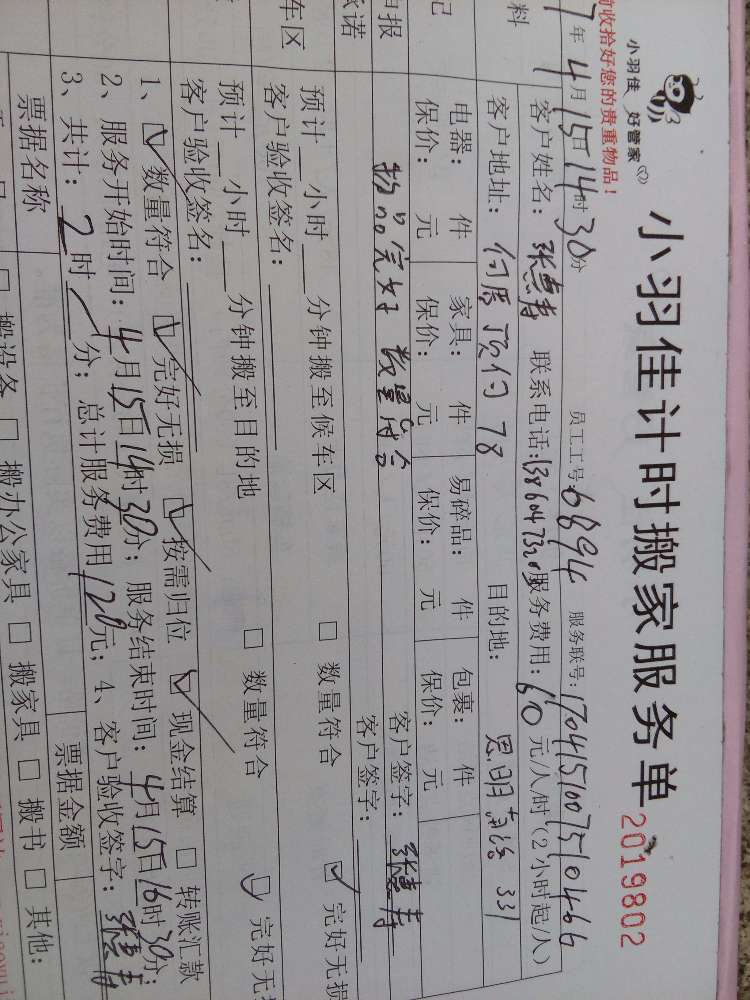 小羽佳 好管家
小羽佳计时搬家服务单
2019802
收拾好您的贵重物品!
7年4月15日14时30分 员工工号:6894 服务联号:
客户姓名: 联系电话: 服务费用:60元/人/时(2小时起/人)
客户地址: 目的地:思明南路331
料
电器: 件 家具: 件 易碎品: 件 包裹: 件
保价: 元 保价: 元 保价: 元 保价: 元
记
物品完好 数量符合 客户签字:
申报
客户签字:
承诺
预计__小时__分钟搬至候车区 □ 数量符合 完好无损
客户验收签名:
车区
预计__小时__分钟搬至目的地 □ 数量符合 完好无
客户验收签名:
1、数量符合 完好无损 按需归位 现金结算 □ 转账汇款
2、服务开始时间:4月15日14时30分;服务结束时间:4月15日16时30分;
3、共计:2时 分;总计服务费用120元;4、客户验收签字:
票据名称 票据金额
□ 搬设备 □ 搬办公家具 □ 搬家具 □ 搬书 □ 其他: